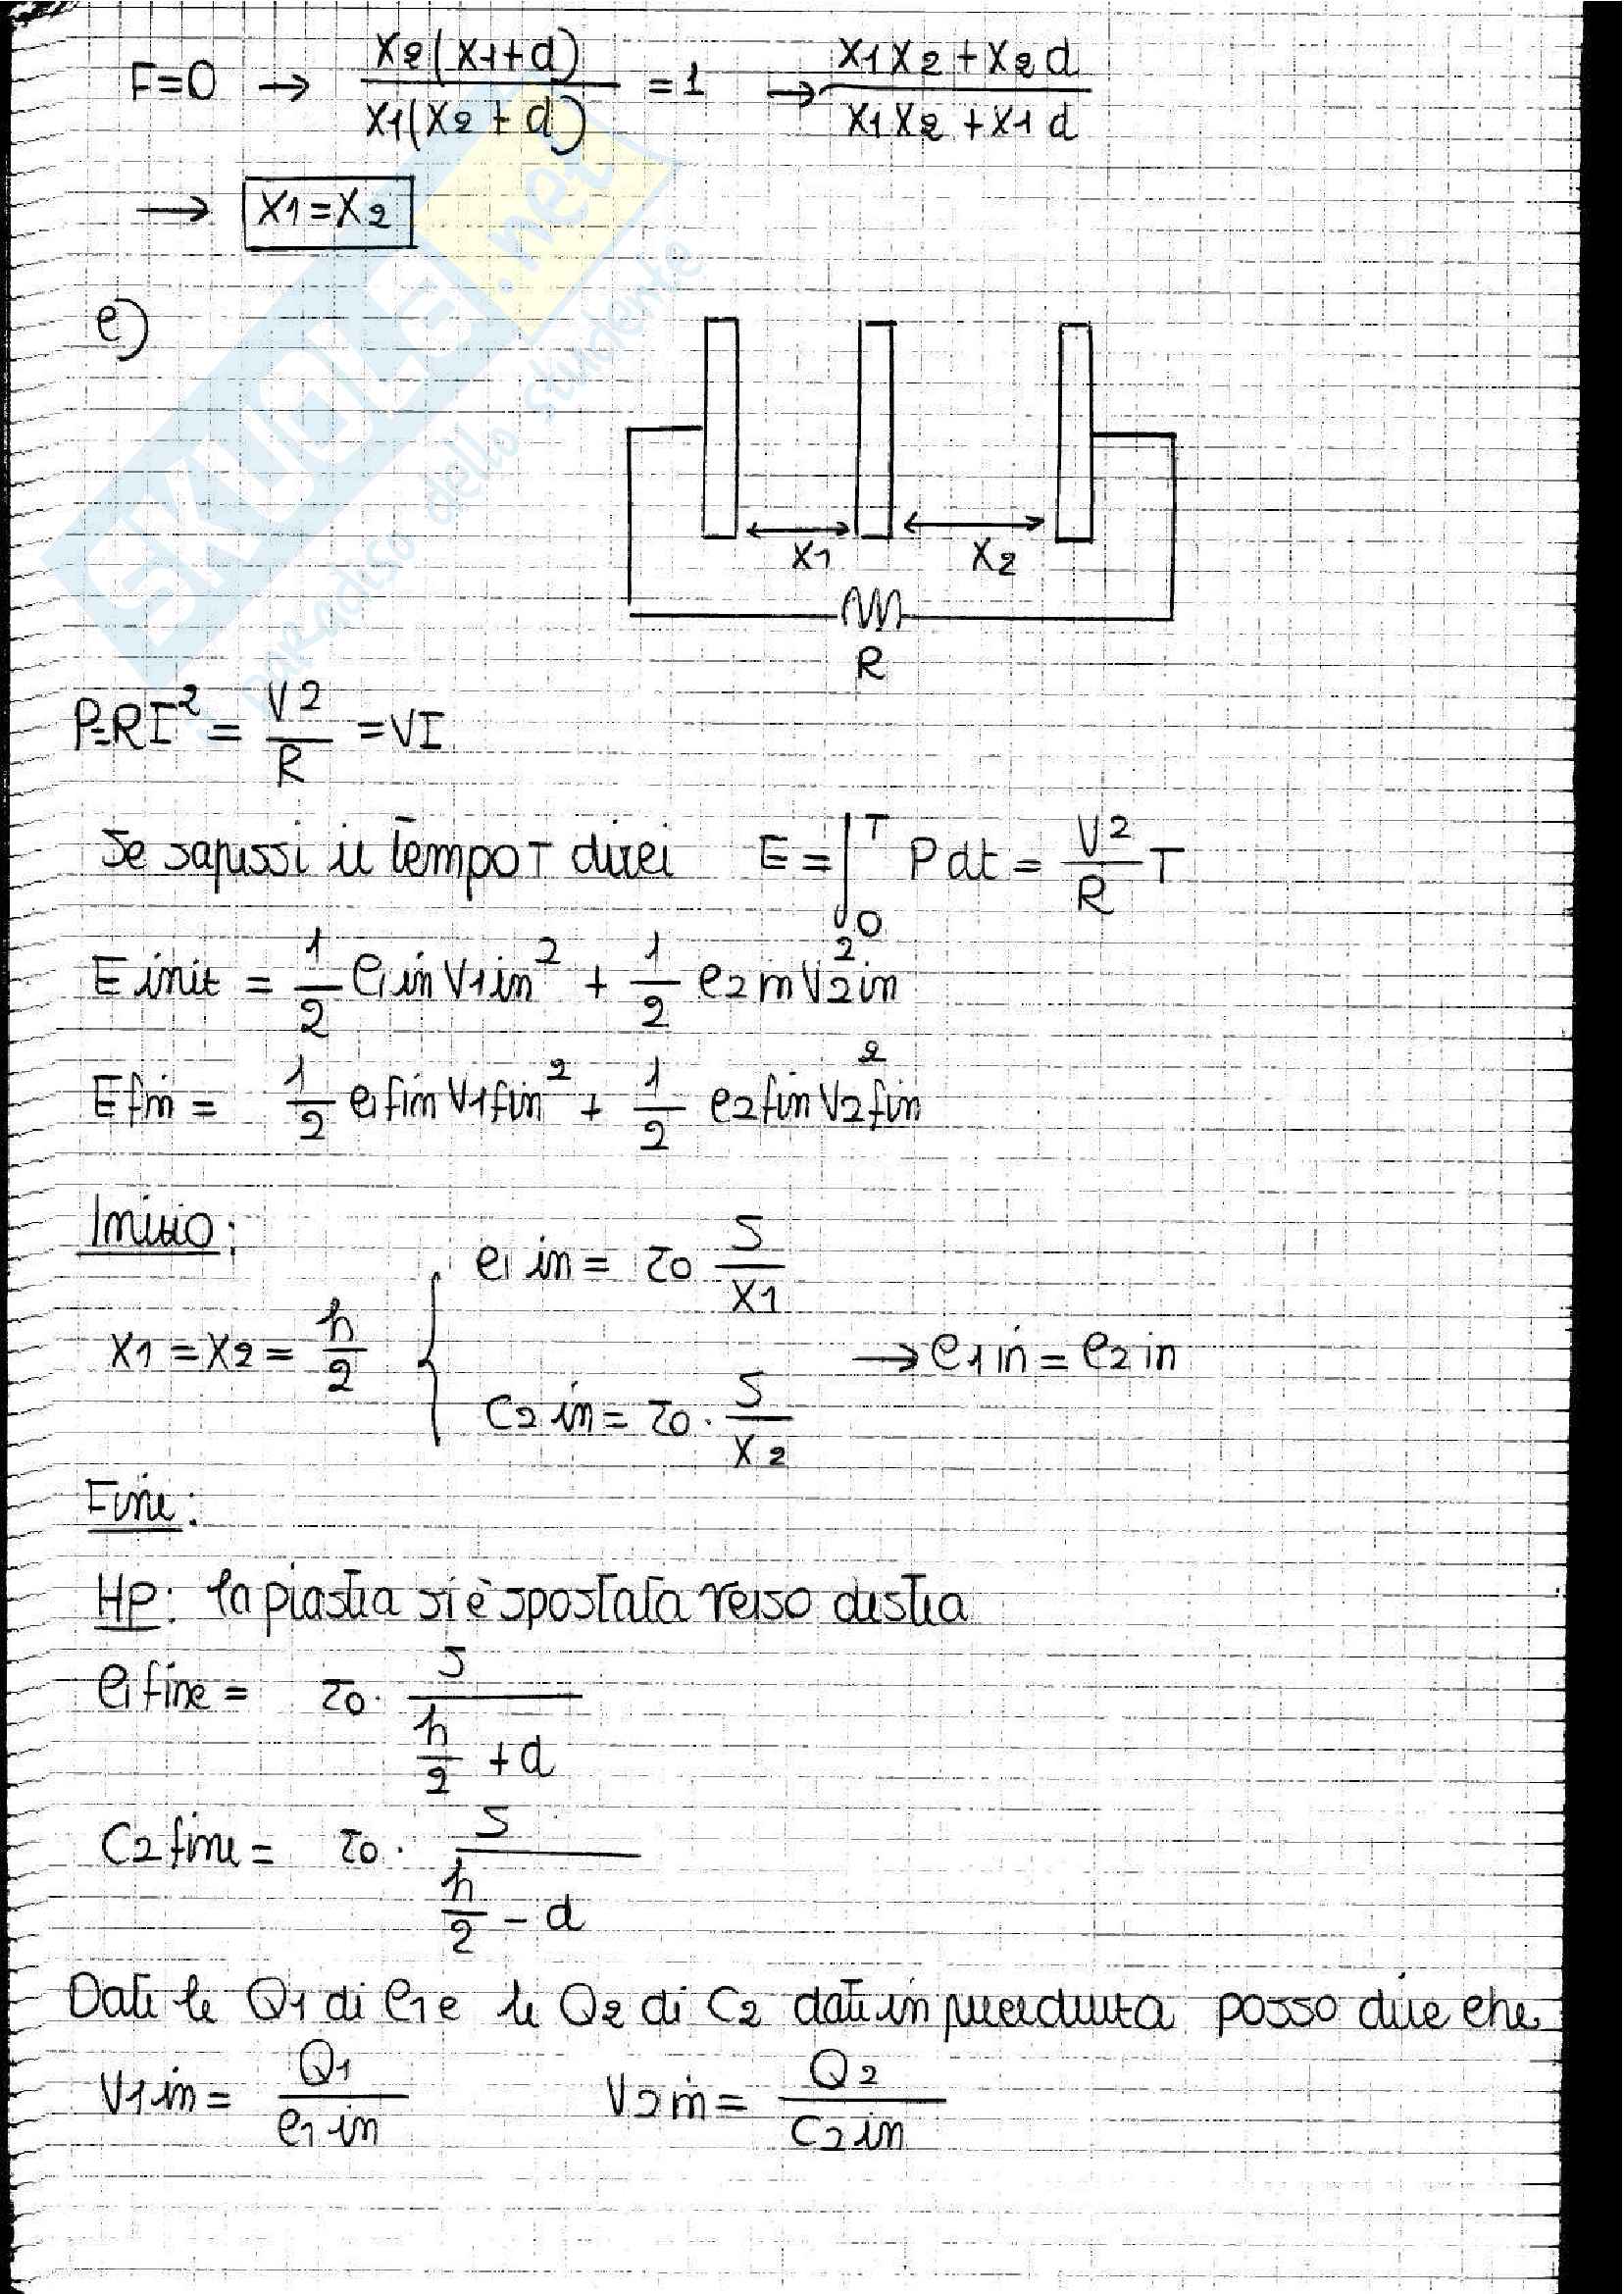 F=0 → x2(x1+d) / x1(x2+d) = 1 → x1x2+x2d / x1x2+x1d
→ x1=x2
e)
x1 x2
R
P=RI² = V2/R = VI
Se sapessi il tempo T direi E = ∫₀ᵀ P dt = V²/R T
E init = 1/2 C1in V1in² + 1/2 C2in V2in²
E fin = 1/2 C1fin V1fin² + 1/2 C2fin V2fin²
Inizio:
x1 = x2 = h/2 { C1 in = ε0 S/x1
C2 in = ε0 · S/x2 → C1in = C2in
Fine:
HP: la piastra si è spostata verso destra
C1 fine = ε0 · S / (h/2 + d)
C2 fine = ε0 · S / (h/2 - d)
Date le Q1 di C1 e le Q2 di C2 date in precedenza posso dire che
V1in = Q1/C1in V2in = Q2/C2in
SKUOLA.net
il paradiso dello studente